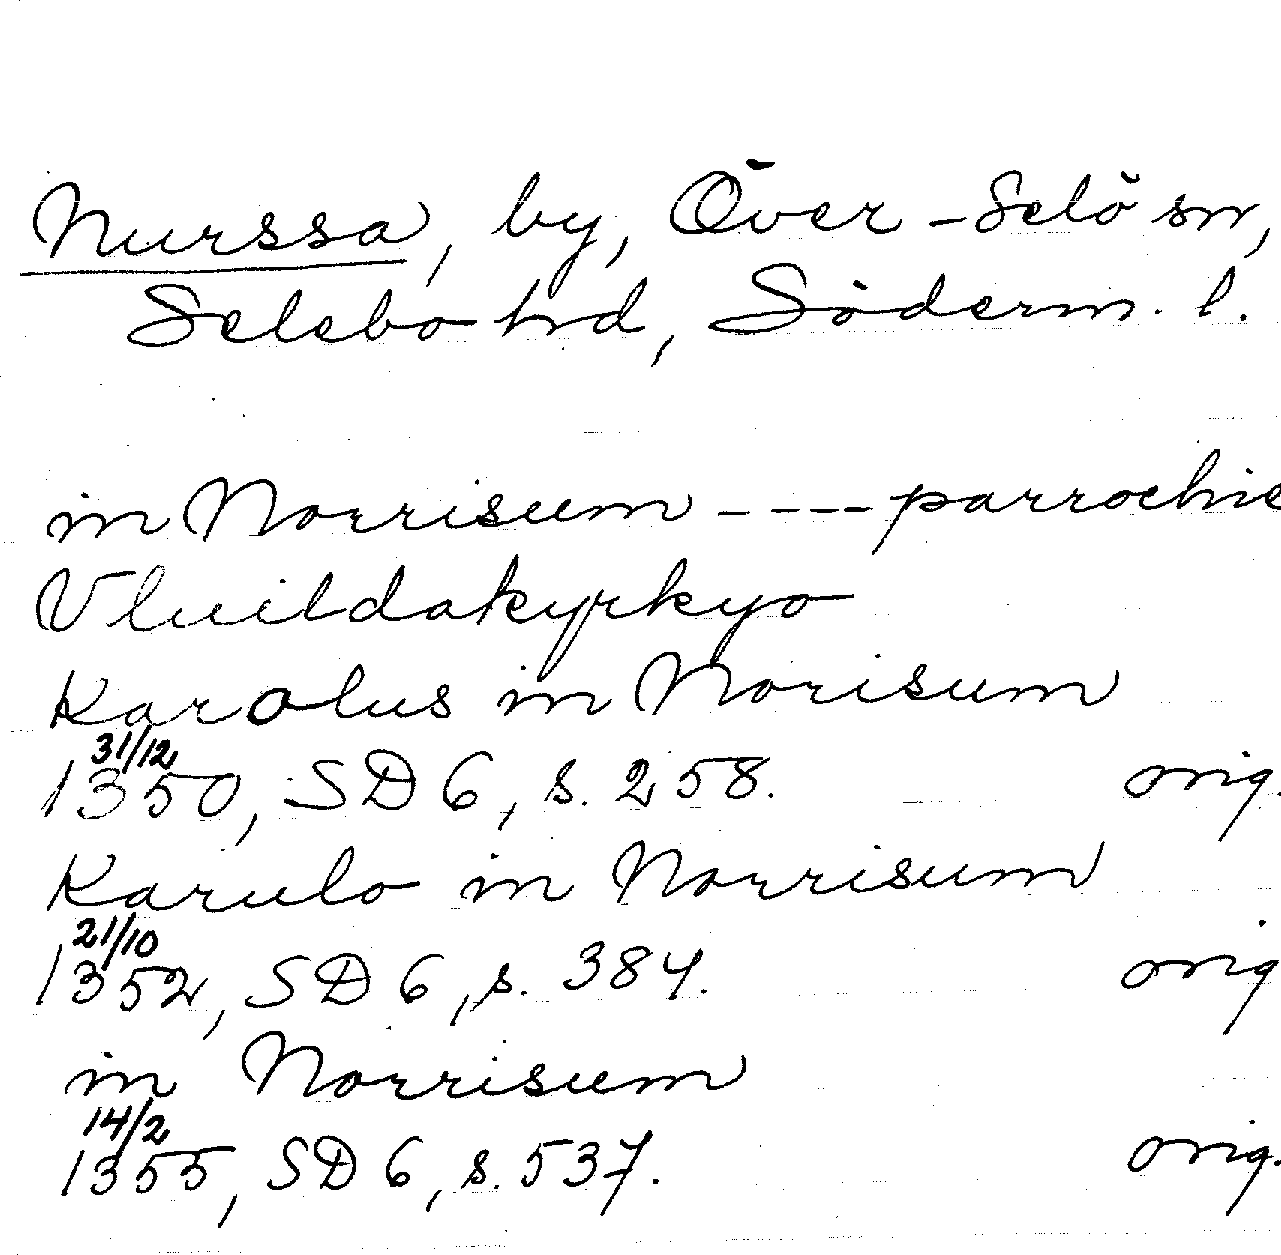 Nurssa, by, Över-Selö sn,
Selebo hd, Söderm. l.
in Norrisum ---- parrochie
Vluildakyrkyo
Karolus in Norisum
31/12
1350, SD 6, s. 258. orig.
Karulo in Norrisum
21/10
1352, SD 6, s. 384. orig
in Norrisum
14/2
1355, SD 6, s. 537. orig.